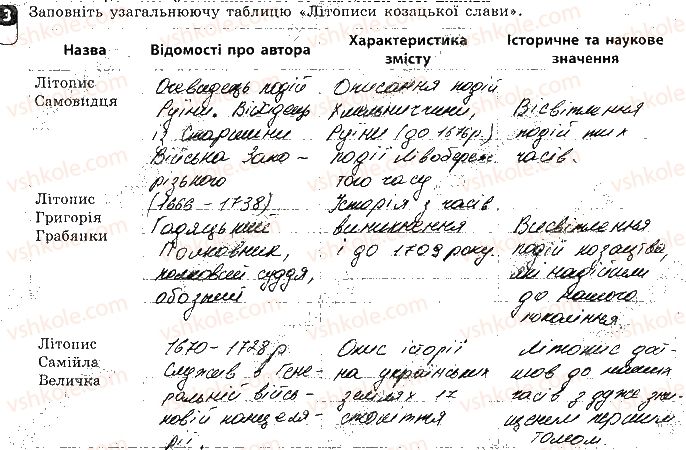 3 Заповніть узагальнюючу таблицю «Літописи козацької слави».
Назва Відомості про автора Характеристика змісту Історичне та наукове значення
Літопис Самовидця
Очевидець подій
Руїни. Вихідець
із Старшини
Війська Запо-
різького
Описання подій
Хмельниччини,
Руїни (до 1676р.)
події лівобереж
того часу
Висвітлення
подій тих
часів.
Літопис Григорія Грабянки
(1666 - 1738)
Гадяцький
Полковник,
полковий суддя,
обозний
Історія з часів
виникнення
і до 1709 року.
Висвітлення
подій козацтва,
які надійшли
до нашого
покоління
Літопис Самійла Величка
1670-1728 р
Служив в Гене-
ральній війсь-
ковій канцеля-
рії.
Опис історії
на українських
землях 17
століття
Літопис дій-
шов до наших
часів з дуже зни-
щеним першим
томом.
vshkole.com